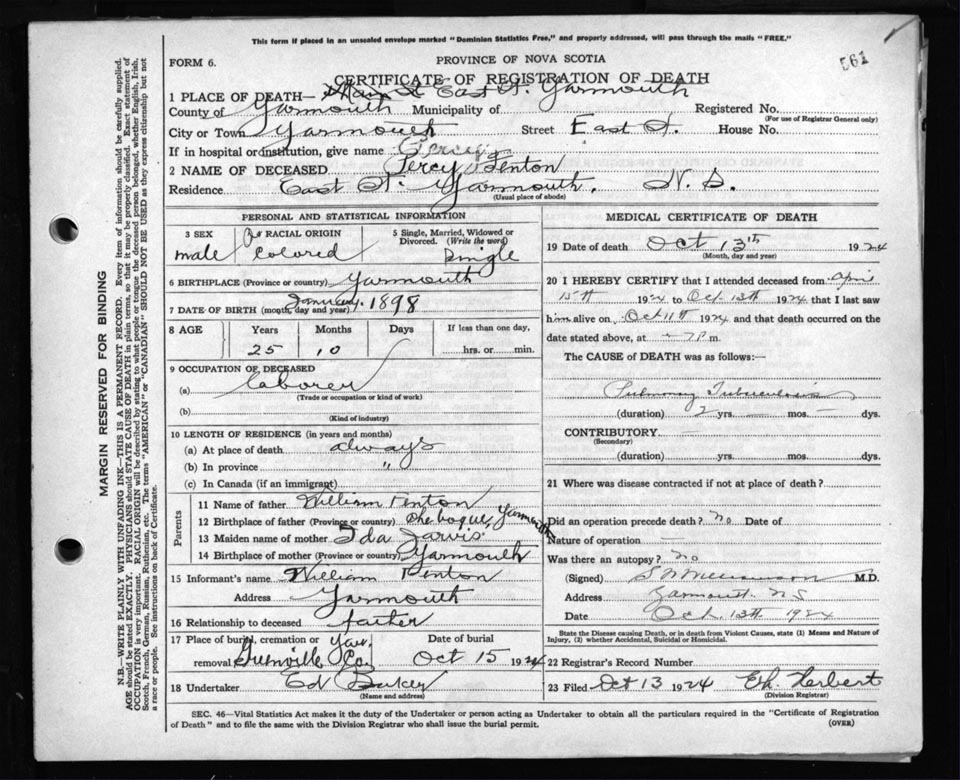 This form if placed in an unsealed envelope marked "Dominion Statistics Free," and properly addressed, will pass through the mails "FREE."
561
FORM 6.
PROVINCE OF NOVA SCOTIA
CERTIFICATE OF REGISTRATION OF DEATH
1 PLACE OF DEATH— East St. Yarmouth
County of Yarmouth Municipality of Registered No.
(For use of Registrar General only)
City or Town Yarmouth Street East St. House No.
If in hospital or institution, give name
2 NAME OF DECEASED Percy Fenton
Residence East St. Yarmouth. N. S.
(Usual place of abode)
PERSONAL AND STATISTICAL INFORMATION
3 SEX male
RACIAL ORIGIN Colored
5 Single, Married, Widowed or Divorced. (Write the word) Single
6 BIRTHPLACE (Province or country) Yarmouth
7 DATE OF BIRTH (month, day and year) January, 1898
8 AGE Years Months Days If less than one day,
25 10 hrs. or min.
9 OCCUPATION OF DECEASED
(a) Laborer
(Trade or occupation or kind of work)
(b)
(Kind of industry)
10 LENGTH OF RESIDENCE (in years and months)
(a) At place of death always
(b) In province "
(c) In Canada (if an immigrant)
Parents
11 Name of father William Fenton
12 Birthplace of father (Province or country) Chebogue, Yarmouth
13 Maiden name of mother Ida Jarvis
14 Birthplace of mother (Province or country) Yarmouth
15 Informant's name William Fenton
Address Yarmouth
16 Relationship to deceased father
17 Place of burial, cremation or removal Greenville Yar. Co. Date of burial Oct 15 1924
18 Undertaker Ed
(Name and address)
MEDICAL CERTIFICATE OF DEATH
19 Date of death Oct 13th 1924
(Month, day and year)
20 I HEREBY CERTIFY that I attended deceased from April
15th 1924 to Oct. 13th 1924 that I last saw
him alive on Oct 11th 1924 and that death occurred on the
date stated above, at 7 P m.
The CAUSE of DEATH was as follows:—
Pulmonary Tuberculosis
(duration) 2 yrs. — mos. — dys.
CONTRIBUTORY —
(Secondary)
(duration) yrs. mos. dys.
21 Where was disease contracted if not at place of death?
Did an operation precede death? no Date of
Nature of operation —
Was there an autopsy? no
(Signed) M.D.
Address Yarmouth N S
Date Oct. 13th 1924
State the Disease causing Death, or in death from Violent Causes, state (1) Means and Nature of Injury, (2) whether Accidental, Suicidal or Homicidal.
22 Registrar's Record Number
23 Filed Oct 13 1924 E. H. Herbert
(Division Registrar)
SEC. 46—Vital Statistics Act makes it the duty of the Undertaker or person acting as Undertaker to obtain all the particulars required in the "Certificate of Registration
of Death" and to file the same with the Division Registrar who shall issue the burial permit. (OVER)
MARGIN RESERVED FOR BINDING
N.B.—WRITE PLAINLY WITH UNFADING INK—THIS IS A PERMANENT RECORD. Every item of information should be carefully supplied.
AGE should be stated EXACTLY. PHYSICIANS should STATE CAUSE OF DEATH in plain terms, so that it may be properly classified. Exact statement of
OCCUPATION is very important. RACIAL ORIGIN will be described by stating to what people or tongue the deceased person belonged, whether English, Irish,
Scotch, French, German, Russian, Ruthenian, etc. The terms "AMERICAN" or "CANADIAN" SHOULD NOT BE USED as they express citizenship but not
a race or people. See instructions on back of Certificate.